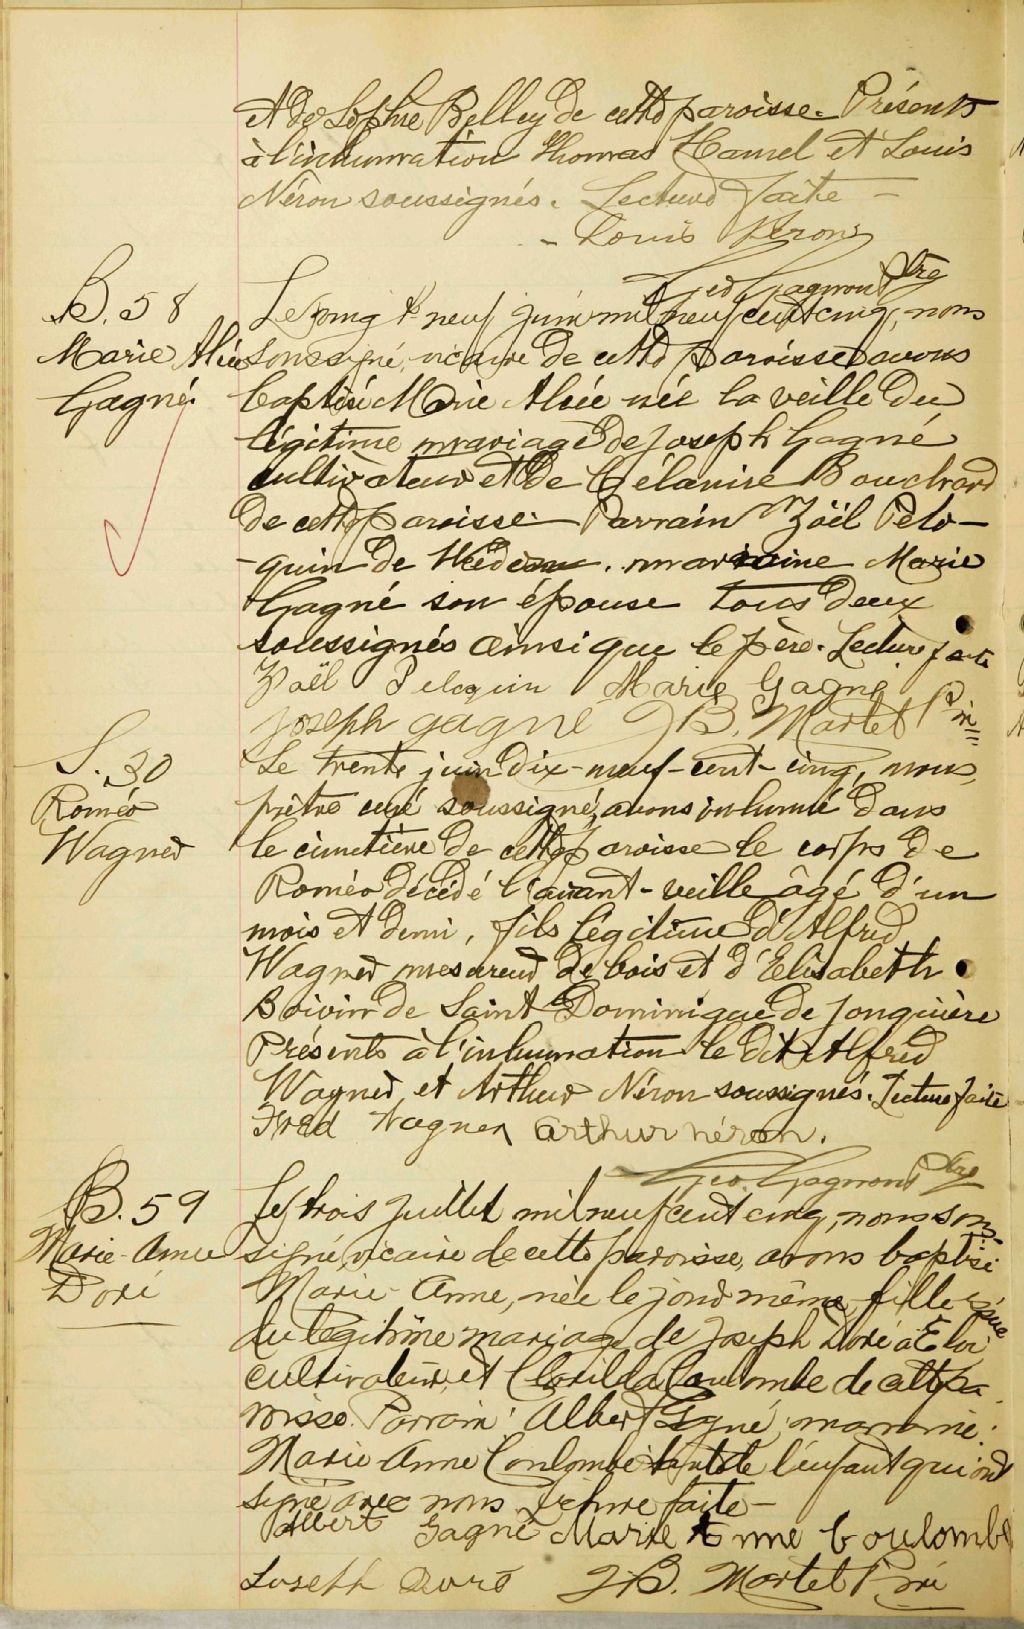 et de Sophie Belley de cette paroisse. Présents
à l'inhumation Thomas Hamel et Louis
Néron soussignés. Lecture faite —
Louis Néron
Geo Gagnon Ptre
B. 58
Marie Alice
Gagné
Le vingt-neuf juin mil neuf cent cinq, nous
soussigné, vicaire de cette paroisse avons
baptisé Marie Alice née la veille du
légitime mariage de Joseph Gagné
cultivateur et de Célanire Bouchard
de cette paroisse. Parrain Zoël Pelo-
-quin de . marraine Marie
Gagné son épouse tous deux
soussignés ainsi que le père. Lecture faite
Zoël Peloquin Marie Gagné
Joseph gagné J.B. Martel
S. 30
Roméo
Wagner
Le trente juin dix-neuf-cent-cinq, nous,
prêtre curé soussigné, avons inhumé dans
le cimetière de cette paroisse le corps de
Roméo décédé l'avant-veille âgé d'un
mois et demi, fils légitime d'Alfred
Wagner mesureur de bois et d'Elisabeth
Boivin de Saint Dominique de Jonquière
Présents à l'inhumation le dit Alfred
Wagner et Arthur Néron soussignés. Lecture faite
Fred Wagner arthur néron.
Geo. Gagnon Ptre
B. 59
Marie-Anne
Doré
Le trois juillet mil neuf cent cinq, nous sous-
signé, vicaire de cette paroisse, avons baptisé
Marie-Anne, née le jour même, fille
du légitime mariage de Joseph Doré à Eloi
cultivateur, et Clorilda Coulombe de cette pa-
roisse. Parrain: Albert Gagné, marraine:
Marie Anne Coulombe tante de l'enfant qui ont
signé avec nous. Lecture faite —
Albert Gagné Marie Anne Coulombe
Joseph Doré J.B. Martel